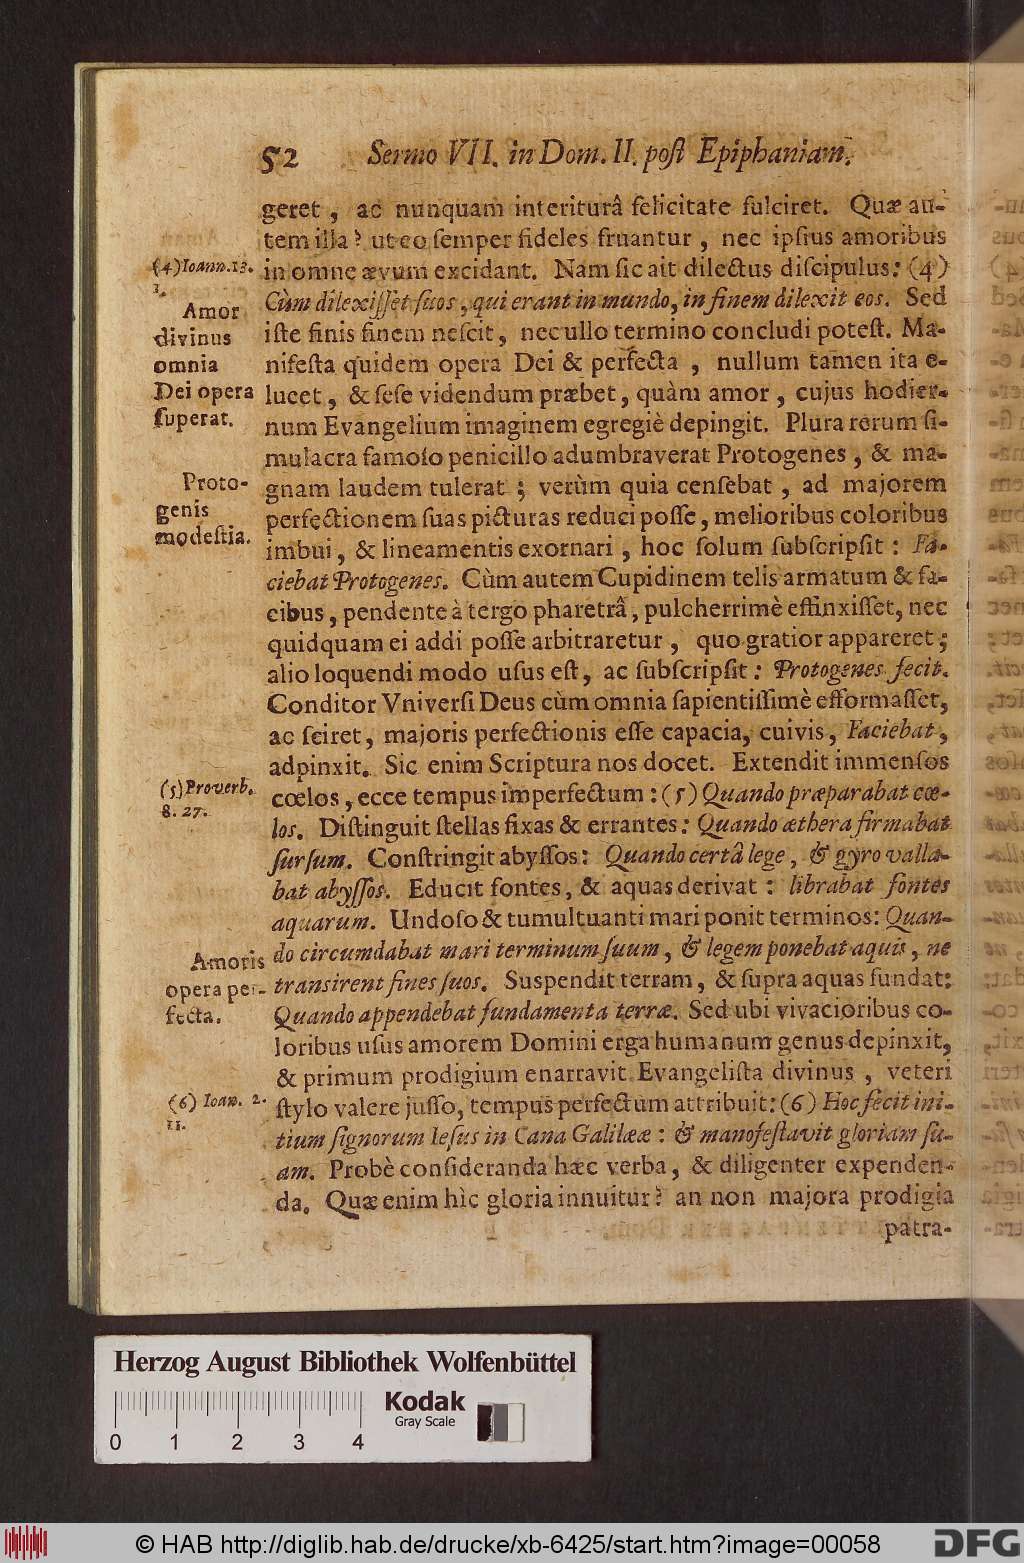 52 Sermo VII. in Dom. II. poſt Epiphaniam.
geret, ac nunquam interiturâ felicitate fulciret. Quæ au-
tem illa? ut eo ſemper fideles fruantur, nec ipſius amoribus
(4) Ioann. 13.
1.
in omne ævum excidant. Nam ſic ait dilectus diſcipulus: (4)
Cùm dilexiſſet ſuos, qui erant in mundo, in finem dilexit eos. Sed
Amor
divinus
omnia
Dei opera
ſuperat.
iſte finis finem neſcit, nec ullo termino concludi poteſt. Ma-
nifeſta quidem opera Dei & perfecta, nullum tamen ita e-
lucet, & ſeſe videndum præbet, quàm amor, cujus hodier-
num Evangelium imaginem egregiè depingit. Plura rerum ſi-
mulacra famoſo penicillo adumbraverat Protogenes, & ma-
Proto-
genis
modeſtia.
gnam laudem tulerat; verùm quia cenſebat, ad majorem
perfectionem ſuas picturas reduci poſſe, melioribus coloribus
imbui, & lineamentis exornari, hoc ſolum ſubſcripſit: Fa-
ciebat Protogenes. Cùm autem Cupidinem telis armatum & fa-
cibus, pendente à tergo pharetrâ, pulcherrimè effinxiſſet, nec
quidquam ei addi poſſe arbitraretur, quo gratior appareret;
alio loquendi modo uſus eſt, ac ſubſcripſit: Protogenes fecit.
Conditor Vniverſi Deus cùm omnia ſapientiſſimè efformaſſet,
ac ſciret, majoris perfectionis eſſe capacia, cuivis, Faciebat,
adpinxit. Sic enim Scriptura nos docet. Extendit immenſos
(5) Proverb.
8. 27.
cœlos, ecce tempus imperfectum: (5) Quando præparabat cœ-
los. Diſtinguit ſtellas fixas & errantes: Quando æthera firmabat
ſurſum. Conſtringit abyſſos: Quando certâ lege, & gyro valla-
bat abyſſos. Educit fontes, & aquas derivat: librabat fontes
aquarum. Undoſo & tumultuanti mari ponit terminos: Quan-
do circumdabat mari terminum ſuum, & legem ponebat aquis, ne
Amoris
opera per-
fecta.
tranſirent fines ſuos. Suspendit terram, & ſupra aquas fundat:
Quando appendebat fundamenta terræ. Sed ubi vivacioribus co-
loribus uſus amorem Domini erga humanum genus depinxit,
& primum prodigium enarravit Evangeliſta divinus, veteri
(6) Ioan. 2.
11.
ſtylo valere juſſo, tempus perfectum attribuit: (6) Hoc fecit ini-
tium ſignorum Ieſus in Cana Galilææ: & manofeſtavit gloriam ſu-
am. Probè conſideranda hæc verba, & diligenter expenden-
da. Quæ enim hìc gloria innuitur? an non majora prodigia
patra-
Herzog August Bibliothek Wolfenbüttel
Kodak
Gray Scale
0 1 2 3 4
© HAB http://diglib.hab.de/drucke/xb-6425/start.htm?image=00058
DFG